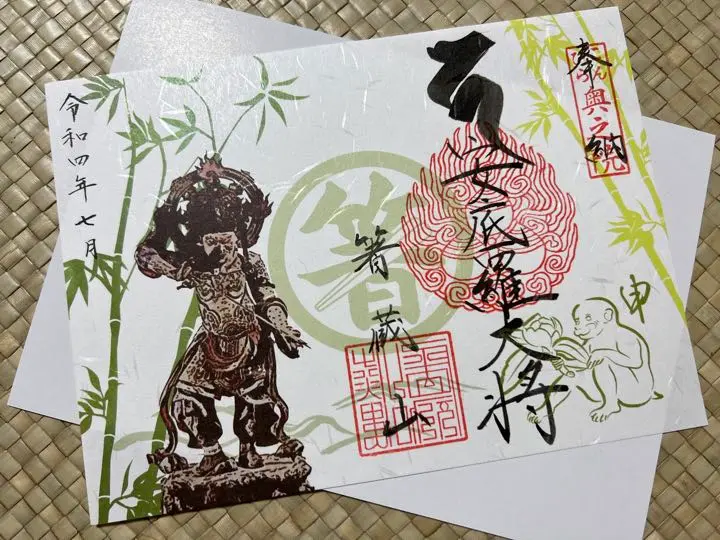 奉納
申
安底羅大将
箸蔵山
箸
令和四年七月